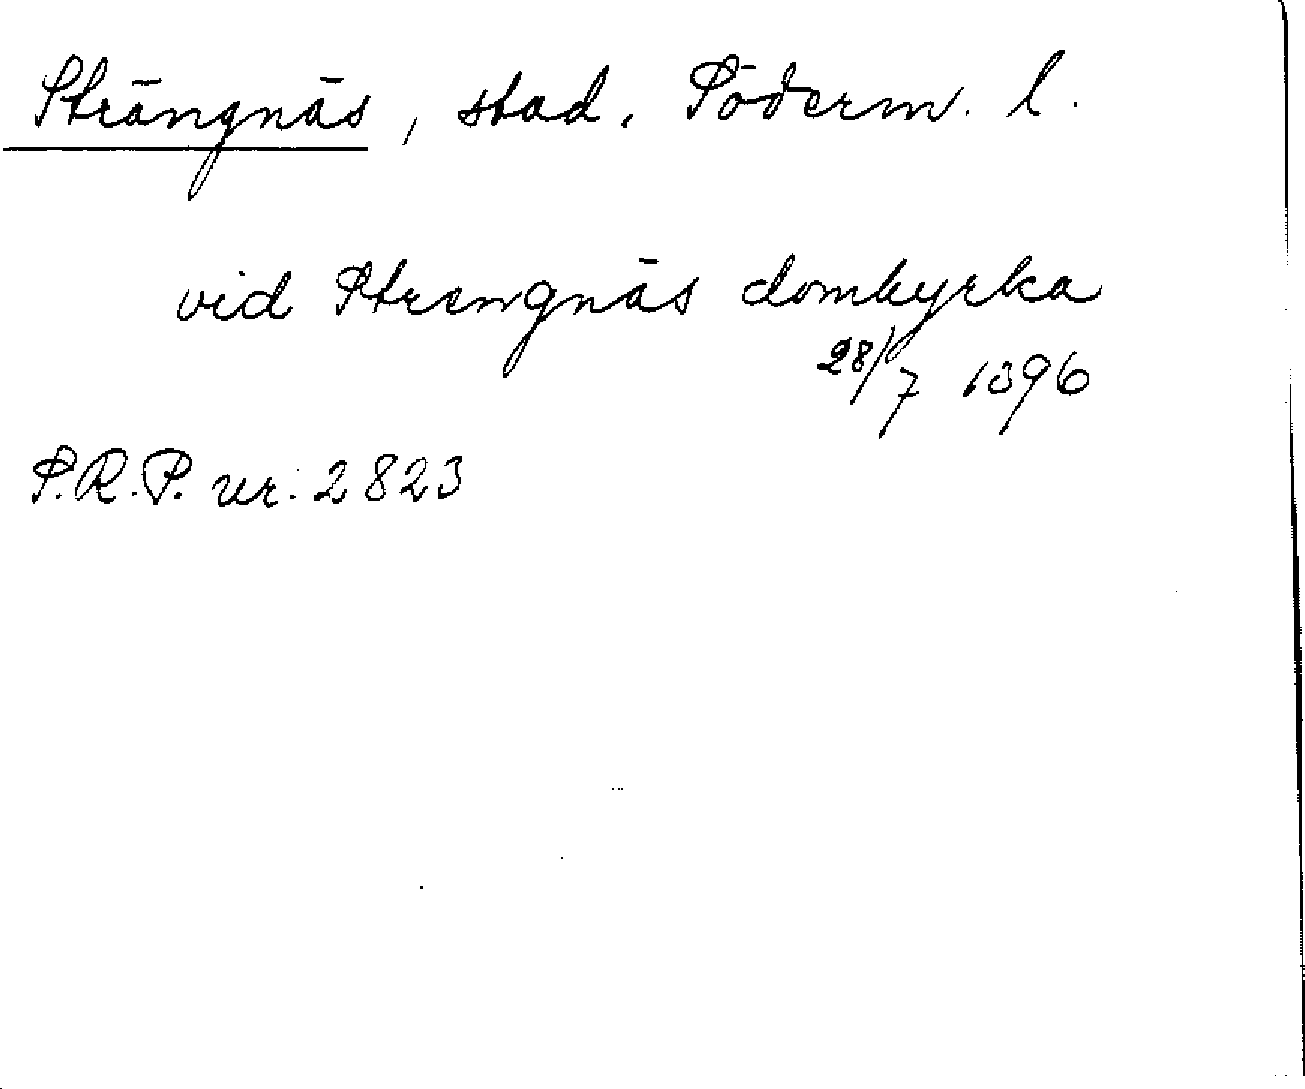 Strängnäs, stad. Söderm. l.
vid Strengnäs domkyrka
28/7 1396
S.R.P. nr: 2823